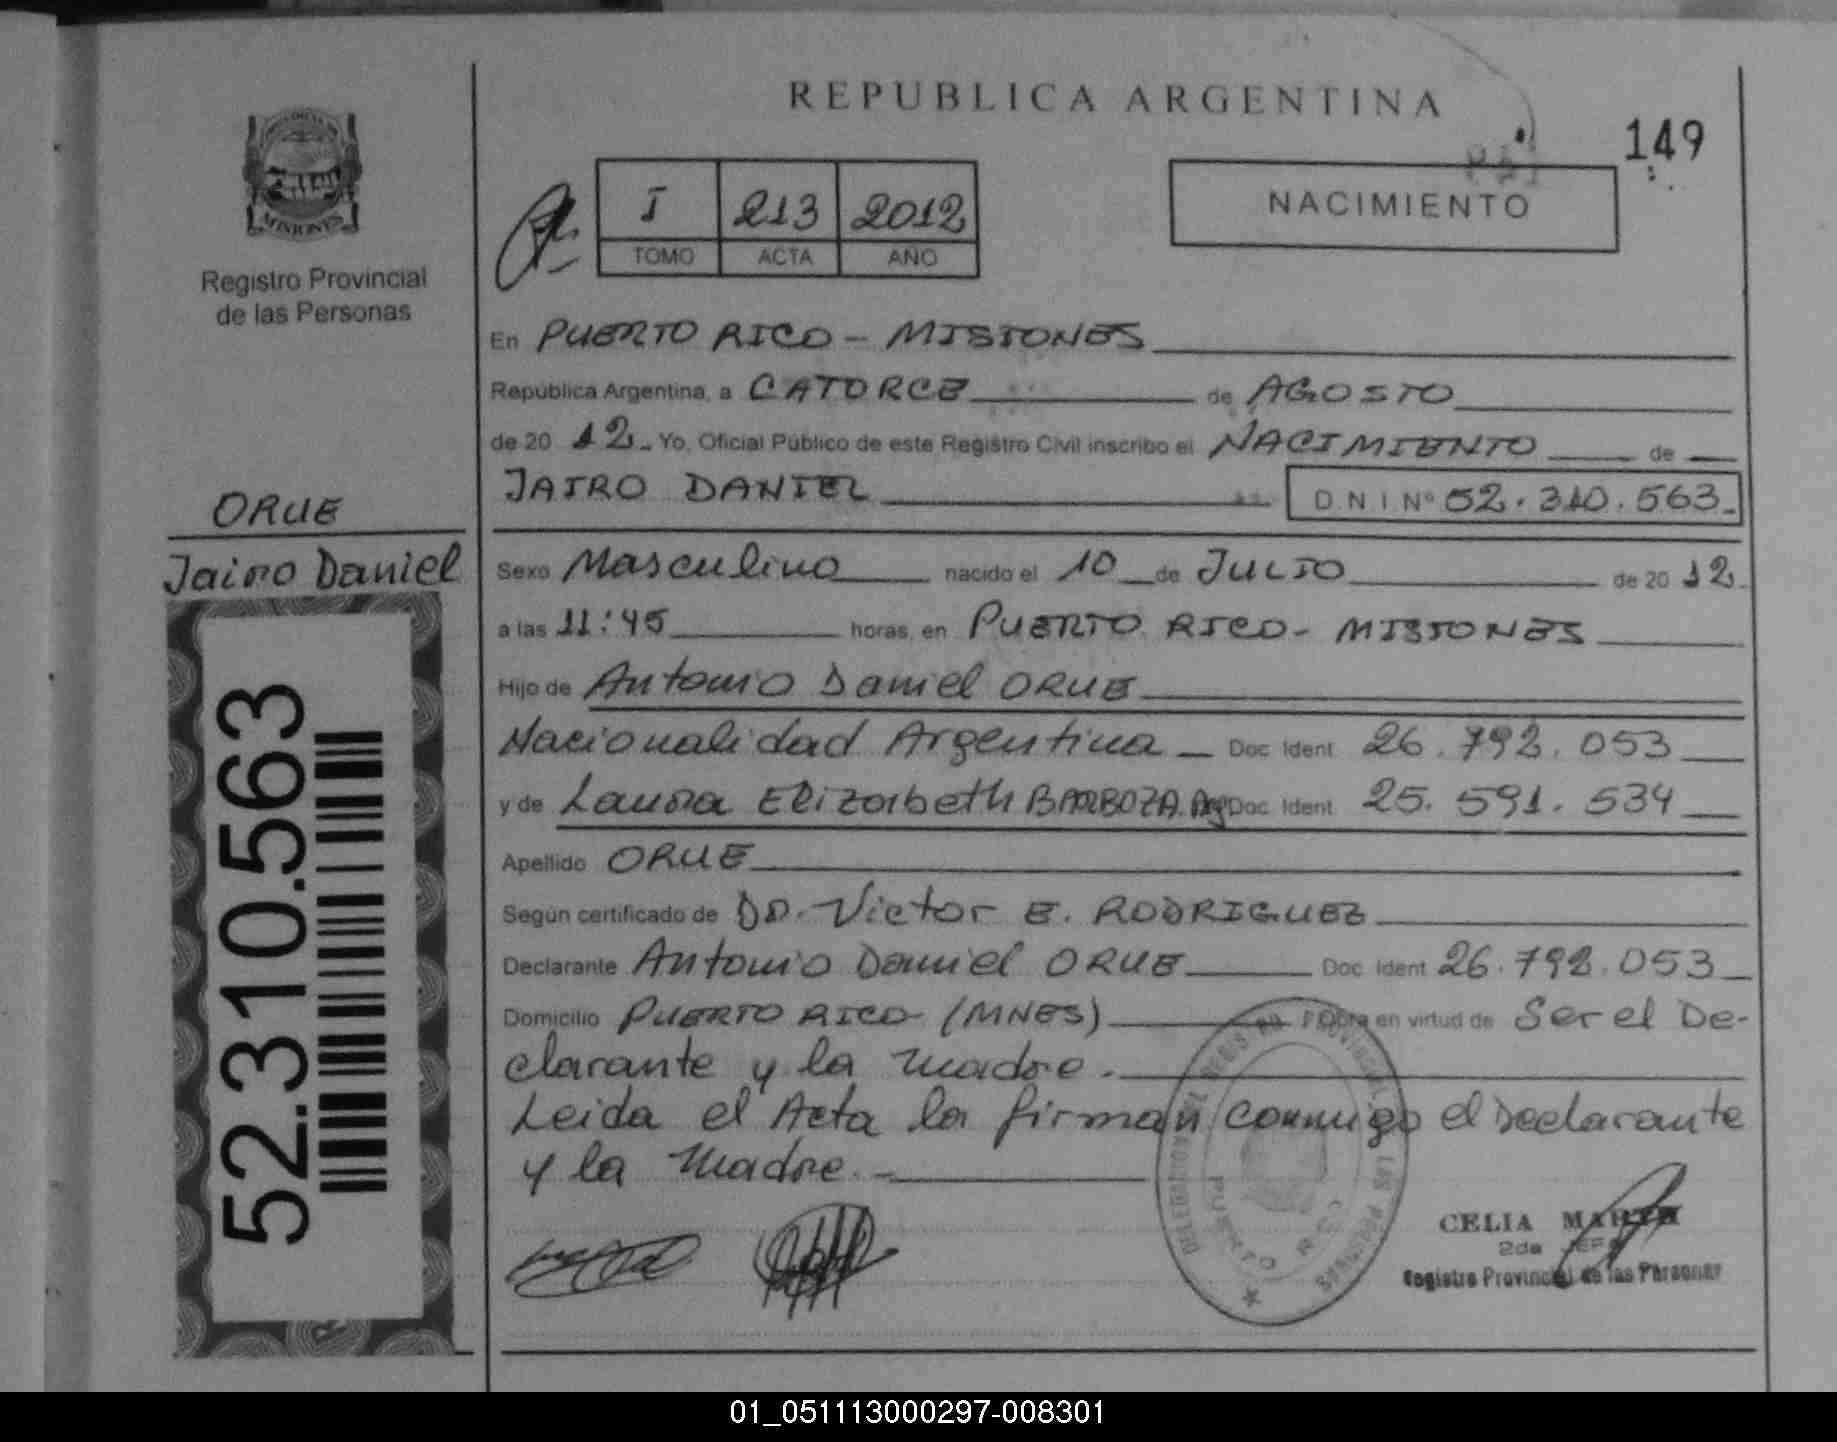 REPUBLICA ARGENTINA
149
PROVINCIA DE
MISIONES
Registro Provincial
de las Personas
I 213 2012
TOMO ACTA AÑO
NACIMIENTO
En PUERTO RICO - MISIONES
República Argentina, a CATORCE de AGOSTO
de 20 12 Yo, Oficial Público de este Registro Civil inscribo el NACIMIENTO de
JAIRO DANIEL D.N.I.Nº 52.310.563
ORUE
Jairo Daniel
52.310.563
Sexo Masculino nacido el 10 de JULIO de 20 12
a las 11:45 horas, en PUERTO RICO - MISIONES
Hijo de Antonio Daniel ORUE
Nacionalidad Argentina Doc Ident 26.792.053
y de Laura Elizabeth BARBOZA. Arg Doc Ident 25.591.534
Apellido ORUE
Según certificado de DR. Victor E. RODRIGUEZ
Declarante Antonio Daniel ORUE Doc Ident 26.792.053
Domicilio PUERTO RICO (MNES) Obra en virtud de Ser el De-
clarante y la Madre.
Leida el Acta la firman conmigo el Declarante
y la Madre.
PUERTO RICO
CELIA
2da JEFA
Registro Provincial de las Personas
01_051113000297-008301